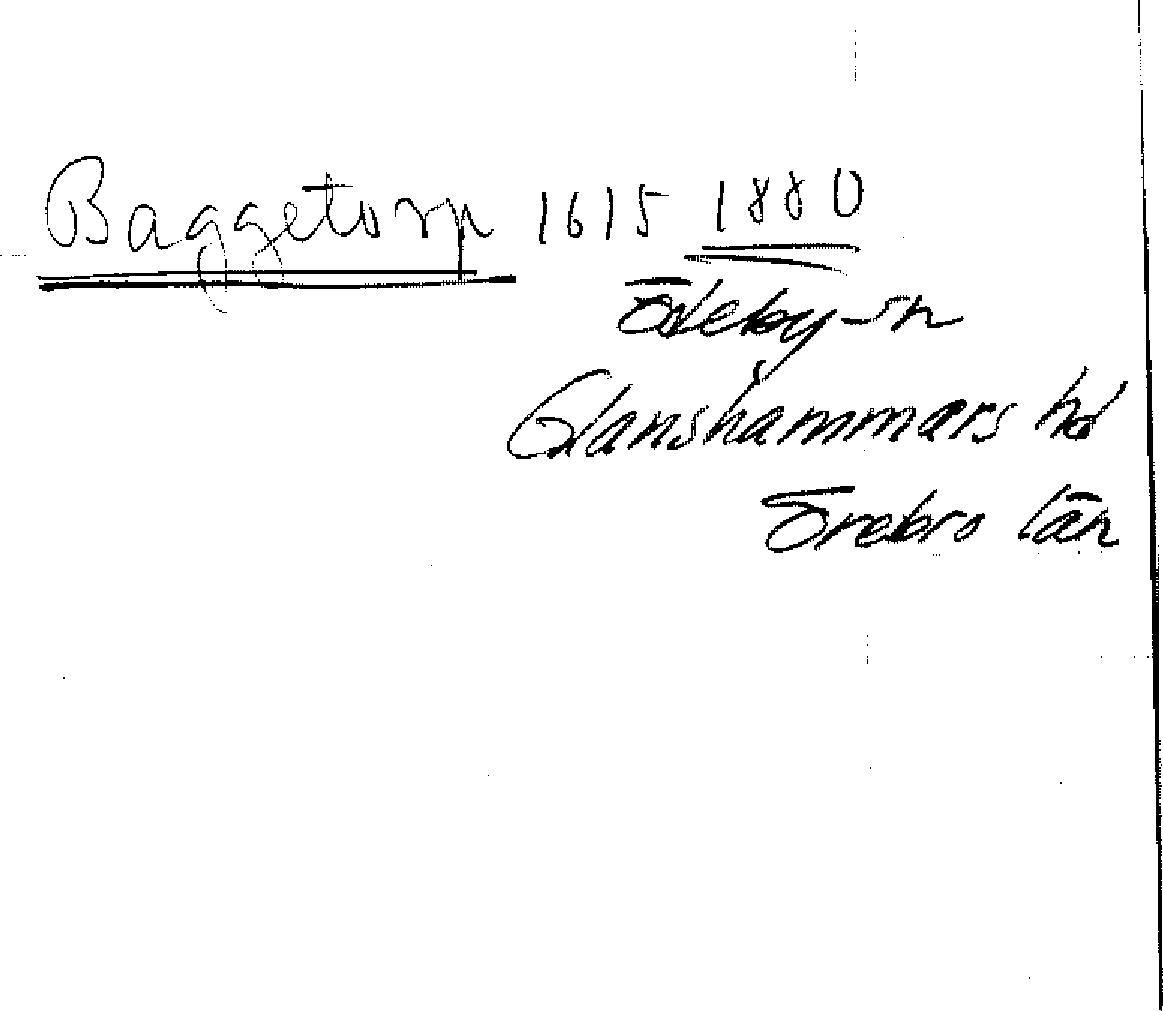 Baggetorp 1615 1880
Ödeby sn
Glanshammars hd
Örebro län